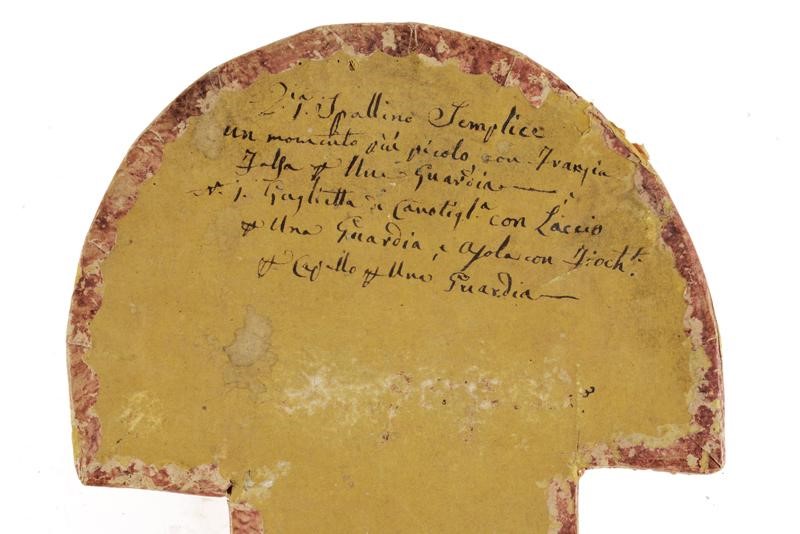 Spallino Semplice
un momento più picolo con Frangia
Falsa p Una Guardia
N. 1. Guglietta di Canotigl.ª con Laccio
p Una Guardia, e Asola con Fioch.
p Capello p Una Guardia